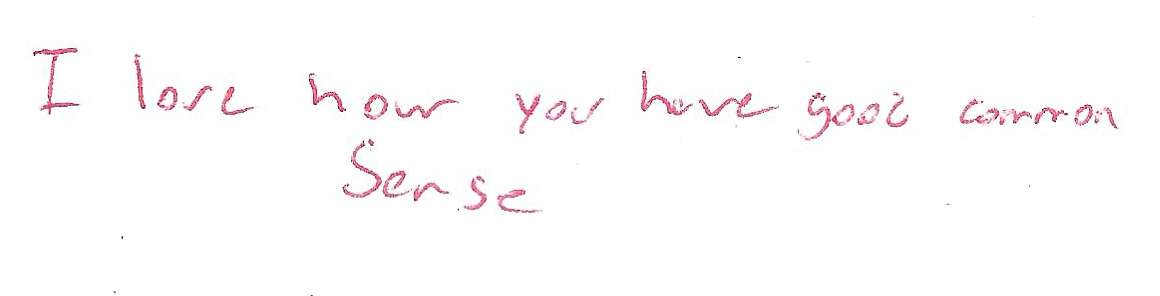 I love how you have good common
Sense